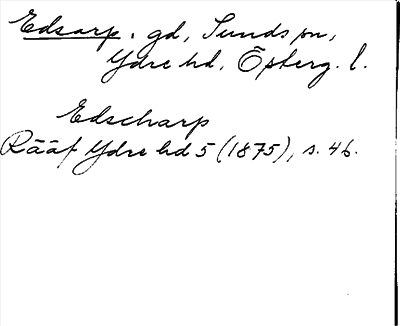 Edsarp. gd, Sunds sn,
Ydre hd, Österg. l.
Edscharp
Rääf Ydre hd 5 (1875), s. 46.